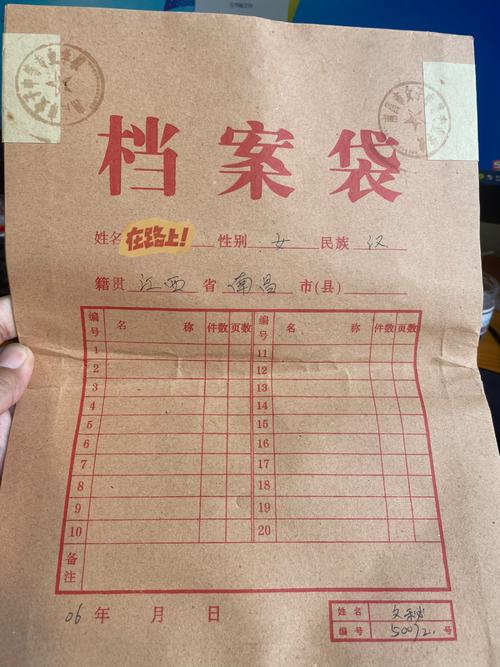 档案袋
姓名 在路上! 性别 女 民族 汉
籍贯 江西 省 南昌 市(县)
编号 名称 件数 页数 编号 名称 件数 页数
1 11
2 12
3 13
4 14
5 15
6 16
7 17
8 18
9 19
10 20
备注
06 年 月 日
姓名 文秘
编号 50072 号